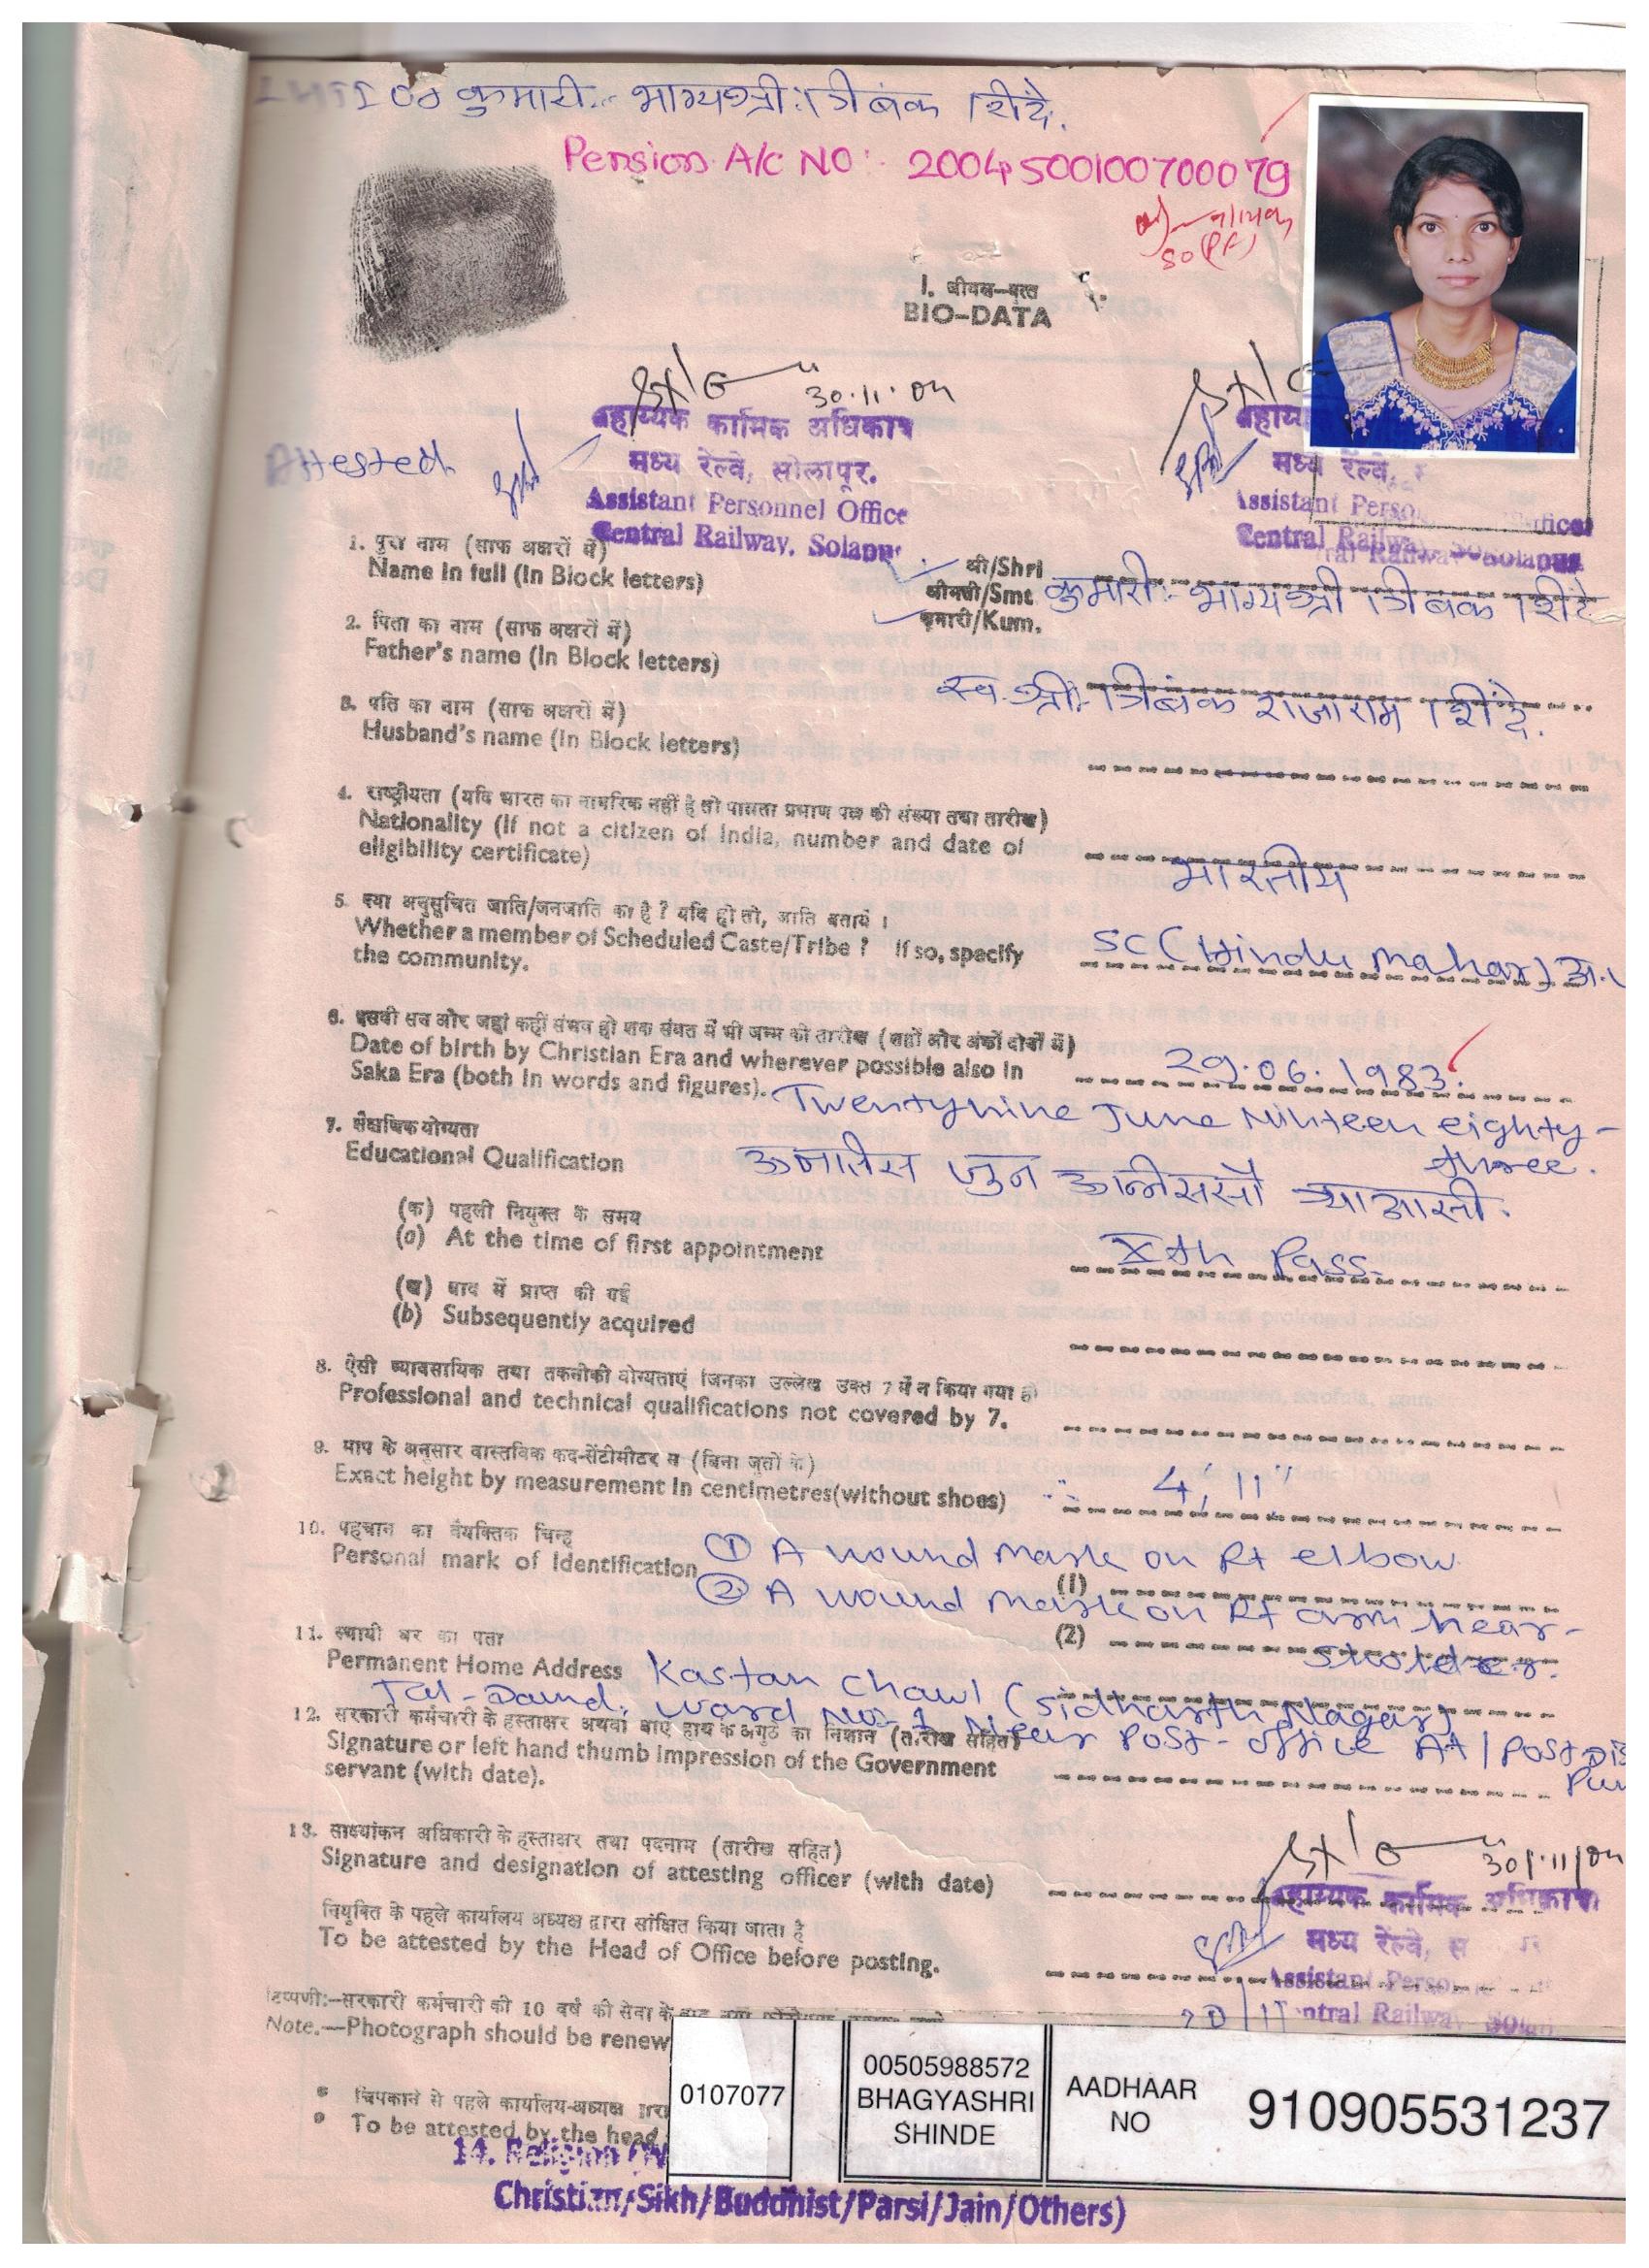 कुमारी:- भाग्यश्री त्रिबंक शिंदे.
Pension A/c NO:- 2004500100700079
SO (PF)
1. जीवन-वृत्त
BIO-DATA
30.11.04
सहाय्यक कार्मिक अधिकारी
मध्य रेल्वे, सोलापूर.
Assistant Personnel Office
Central Railway, Solapur
Attested
सहाय्य
मध्य रेल्वे,
Assistant Perso
Central Railway
1. पुरा नाम (साफ अक्षरों में)
Name in full (In Block letters)
श्री/Shri
श्रीमती/Smt
कुमारी/Kum.
कुमारी:- भाग्यश्री त्रिबक शिंदे
2. पिता का नाम (साफ अक्षरों में)
Father's name (In Block letters)
स्व. श्री:- त्रिबंक राजाराम शिंदे.
3. पति का नाम (साफ अक्षरों में)
Husband's name (In Block letters)
4. राष्ट्रीयता (यदि भारत का नागरिक नहीं है तो पात्रता प्रमाण पत्र की संख्या तथा तारीख)
Nationality (If not a citizen of India, number and date of
eligibility certificate)
भारतीय
5. क्या अनुसूचित जाति/जनजाति का है? यदि हो तो, जाति बतायें।
Whether a member of Scheduled Caste/Tribe? If so, specify
the community.
SC (Hindu Mahar) अ.
6. इसवी सन और जहां कहीं संभव हो शक संवत में भी जन्म की तारीख (शब्दों और अंकों दोनों में)
Date of birth by Christian Era and wherever possible also in
Saka Era (both in words and figures).
29.06.1983.
Twentynine June Ninteen eighty-
three.
7. शैक्षणिक योग्यता
Educational Qualification
ऊनातीस जुन ऊन्नीससौ त्र्याअासी.
(क) पहली नियुक्त के समय
(a) At the time of first appointment
Xth Pass.
(ख) बाद में प्राप्त की गई
(b) Subsequently acquired
8. ऐसी व्यावसायिक तथा तकनीकी योग्यताएं जिनका उल्लेख उक्त 7 में न किया गया हो
Professional and technical qualifications not covered by 7.
9. माप के अनुसार वास्तविक कद-सेंटीमीटर में (बिना जुतों के)
Exact height by measurement in centimetres(without shoes)
4', 11"
10. पहचान का वैयक्तिक चिन्ह
Personal mark of Identification
① A wound mark on Rt elbow
(1)
② A wound mark on Rt arm near-
sholder.
(2)
11. स्थायी घर का पता
Permanent Home Address
Kastan Chawl (Sidharth Nagar)
Tal-Daund. Ward No-1 Near Post-office At/Post Dis
Pun
12. सरकारी कर्मचारी के हस्ताक्षर अथवा बाएं हाथ के अंगुठे का निशान (तारीख सहित)
Signature or left hand thumb impression of the Government
servant (with date).
13. साक्ष्यांकन अधिकारी के हस्ताक्षर तथा पदनाम (तारीख सहित)
Signature and designation of attesting officer (with date)
30/11/04
सहाय्यक कार्मिक अधिकारी
मध्य रेल्वे, स
Assistant Perso
Central Railway Solap
नियुक्ति के पहले कार्यालय अध्यक्ष द्वारा सांक्षित किया जाता है
To be attested by the Head of Office before posting.
टिप्पणी:-सरकारी कर्मचारी की 10 वर्ष की सेवा के बाद
Note.—Photograph should be renew
* चिपकाने से पहले कार्यालय-अध्यक्ष द्वारा
* To be attested by the head
0107077
00505988572
BHAGYASHRI
SHINDE
AADHAAR
NO
910905531237
14. Religion
Christian/Sikh/Buddhist/Parsi/Jain/Others)